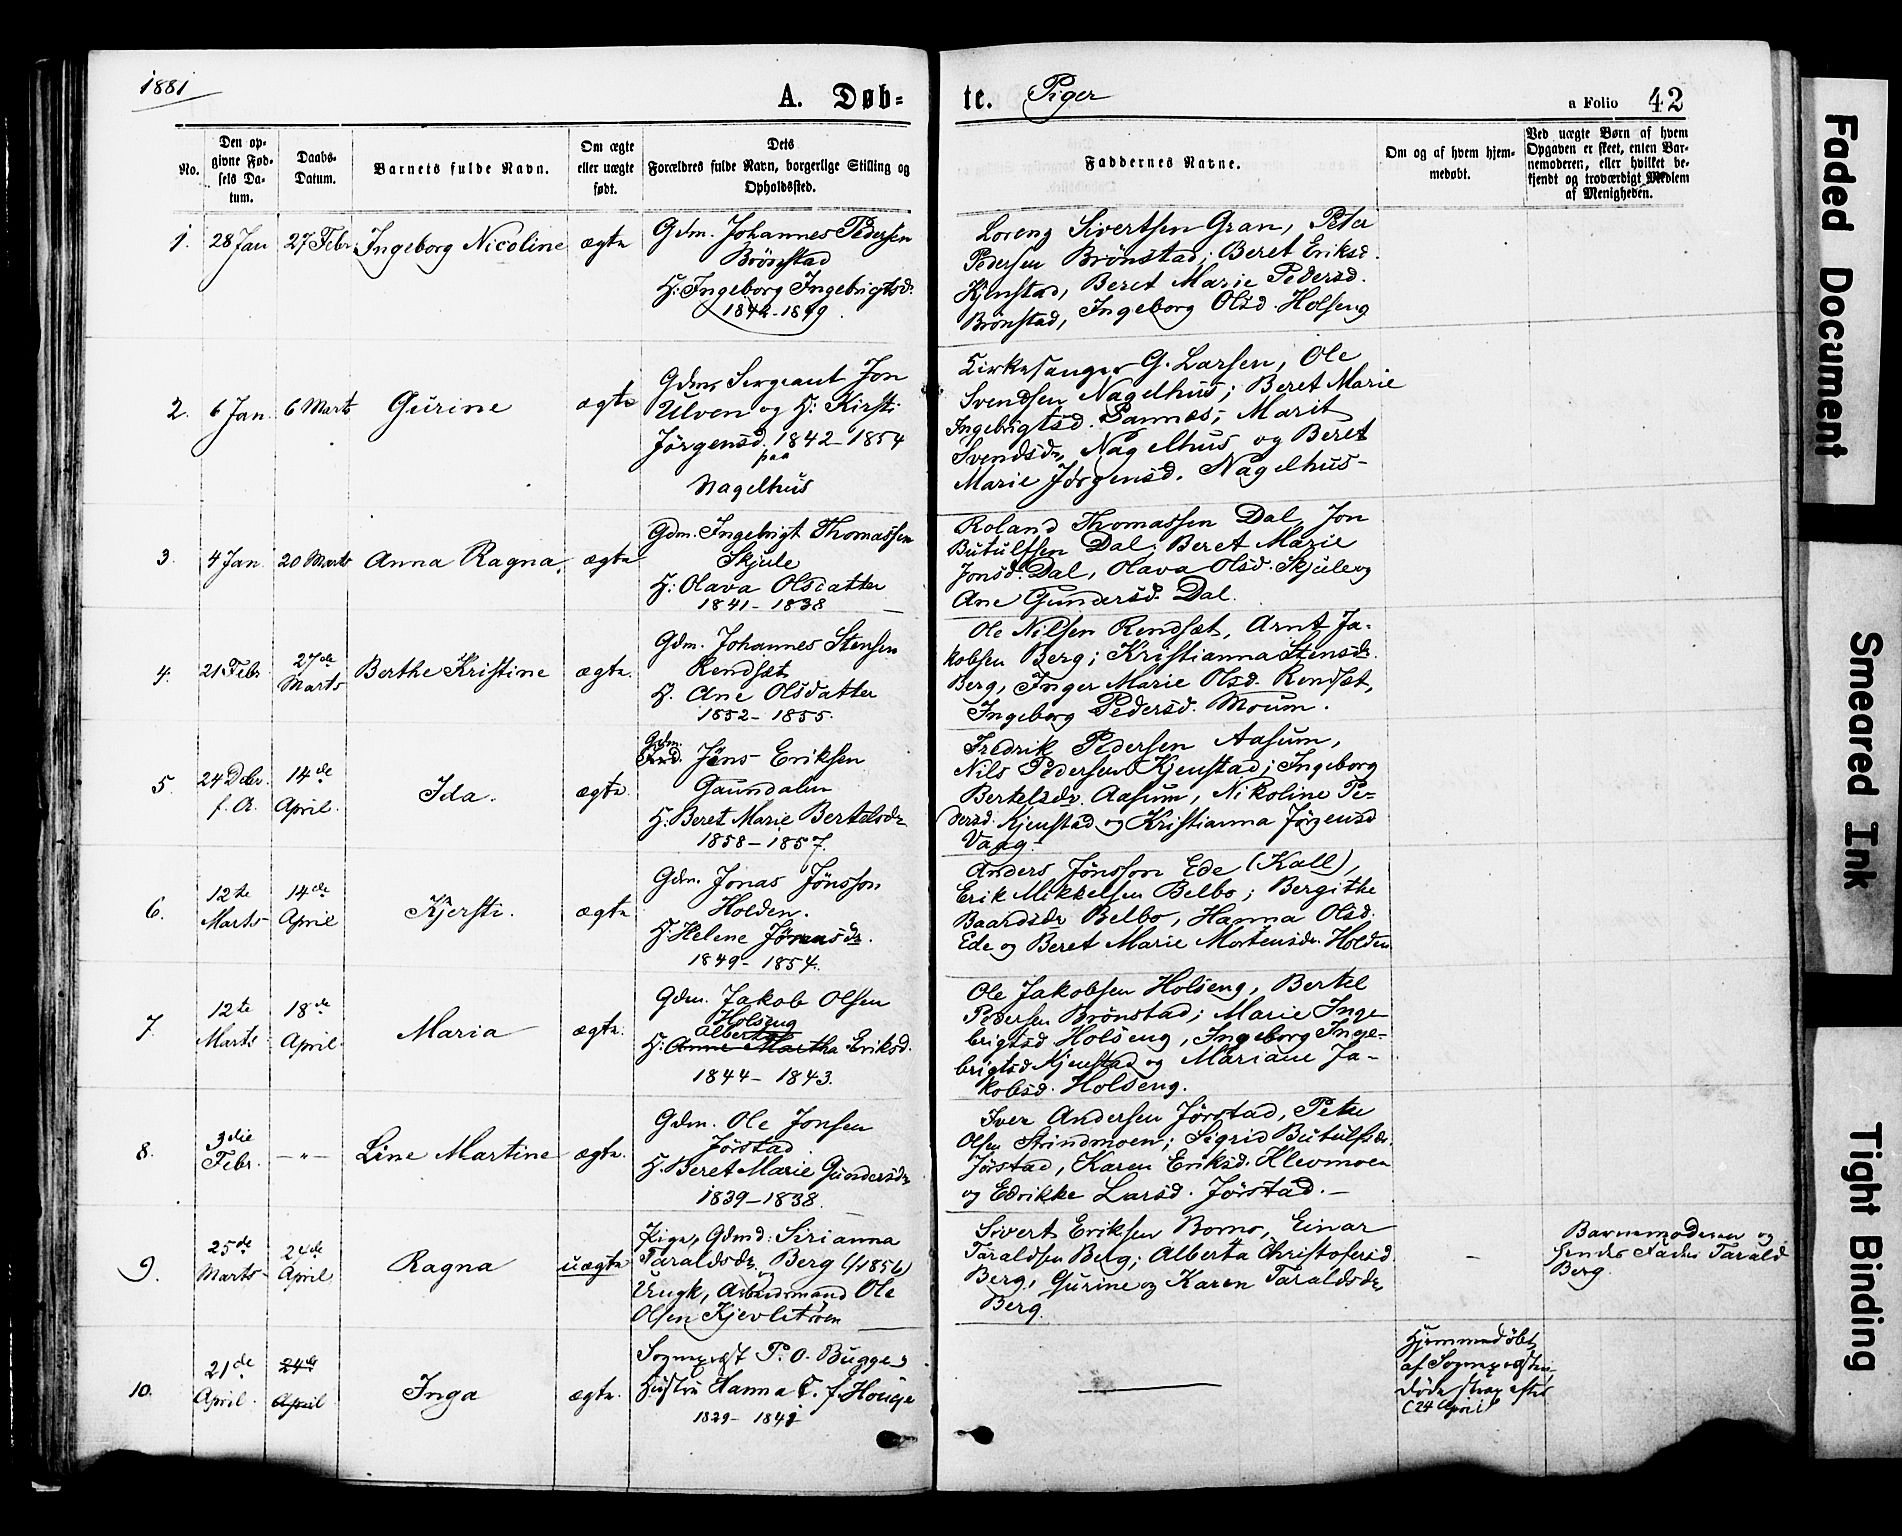 1881
A. Døb=
te. Piger
a Folio 42
No.
Den op-
givne Fød-
sels Da-
tum.
Daabs-
Datum.
Barnets fulde Navn.
Om ægte
eller uægte
født.
Dets
Forældres fulde Navn, borgerlige Stilling og
Opholdssted.
Faddernes Navne.
Om og af hvem hjem-
medøbt.
Ved uægte Børn af hvem
Opgaven er skeet, enten Bar-
nemoderen, eller hvilket be-
kjendt og troværdigt Medlem
af Menigheden.
1. 28 Jan 27 Febr. Ingeborg Nicoline ægte
Gdm. Johannes Pedersen
Brönstad
H: Ingeborg Ingebrigtsd.
Lorenz Sivertsen Gran, Peter
Pedersen Brönstad; Beret Eriksd.
Kjenstad, Beret Marie Pedersd.
Brönstad, Ingeborg Olsd. Holseng
2. 6 Jan 6 Marts Gurine ægte
Gdm, Sergeant Jon
Ulven og H: Kirsti
Jörgensd. 1842-1854
paa
Nagelhus
Kirkesanger G. Larsen, Ole
Svendsen Nagelhus; Beret Marie
Ingebrigtsd. Sannes; Marit
Svendsdr, Nagelhus og Beret
Marie Jörgensd. Nagelhus-
3. 4 Jan 20 Marts Anna Ragna. ægte
Gdm. Ingebrigt Thomassen
Skjule
H: Olava Olsdatter
1841-1838
Roland Thomassen Dal, Jon
Butulfsen Dal; Beret Marie
Jonsd. Dal, Olava Olsd. Skjule og
Ane Gundersd. Dal.
4. 21 Febr 27de Marts Berthe Kristine ægte.
Gdm. Johannes Stensen
Rendsæt
H. Ane Olsdatter
1852-1855.
Ole Nilsen Rendsæt, Arnt Ja-
kobsen Berg; Kristianna Stensdr.
Berg, Inger Marie Olsd. Rendsæt,
Ingeborg Pedersd. Moum.
5. 24 Debr. f. A. 14de April. Ida. ægte.
Gdm.
Jöns Eriksen
Gaundalen
H: Beret Marie Bertelsdr
1858-1857.
Fredrik Pedersen Aasum,
Nils Pedersen Kjenstad; Ingeborg
Bertelsdr. Aasum, Nikoline Pe-
dersd. Kjenstad og Kristianna Jörgensd
6. 12te Marts 14de April Kjersti. ægte
Gdm. Jonas Jönsson
Holden.
H: Helene Jönsdr.
1849-1854.
Anders Jönsson Ede (Kall),
Erik Mikkelsen Belbo; Bergithe
Baardsdr Belbo, Hanna Olsd.
Ede og Beret Marie Mortensdr. Holden
7. 12te Marts 18de April. Maria ægte.
Gdm. Jakob Olsen
Holseng
Alberta
H: Anne Martha Eriksd.
1844-1843.
Ole Jakobsen Holseng, Bertel
Pedersen Brönstad; Marie Inge-
brigtsd Holseng, Ingeborg Inge-
brigtsd Kjenstad og Mariane Ja-
kobsd. Holseng.
8. 3die Febr. -"- Line Martine ægte.
Gdm. Ole Jonsen
Jörstad
H. Beret Marie Gundersdr
1839-1838.
Iver Andersen Jörstad, Peter
Olsen Strindmoen; Sigrid Butulfsdr.
Jörstad, Karen Eriksd. Klevmoen
og Edrikke Larsd. Jörstad.-
9. 25de Marts 24de April Ragna uægte
Pige, Gdmd: Sirianna
Taraldsdr. Berg (1856)
Ungk, Arbeidsmand Ole
Olsen Kjevlströen
Sivert Eriksen Bomo, Einar
Taraldsen Berg; Alberta Christofersd.
Berg, Gurine og Karen Taraldsdr
Berg.
-
Barnemoderen og
hendes Fader Tarald
Berg.
10. 21de April. 24de April Inga ægte.
Sognepræst P. O. Bugge og
Hustru Hanna C. f. Houge
Hjemmedøbt
af Sognepræsten
døde strax efter
(24 April
Faded Document
Smeared Ink
Tight Binding